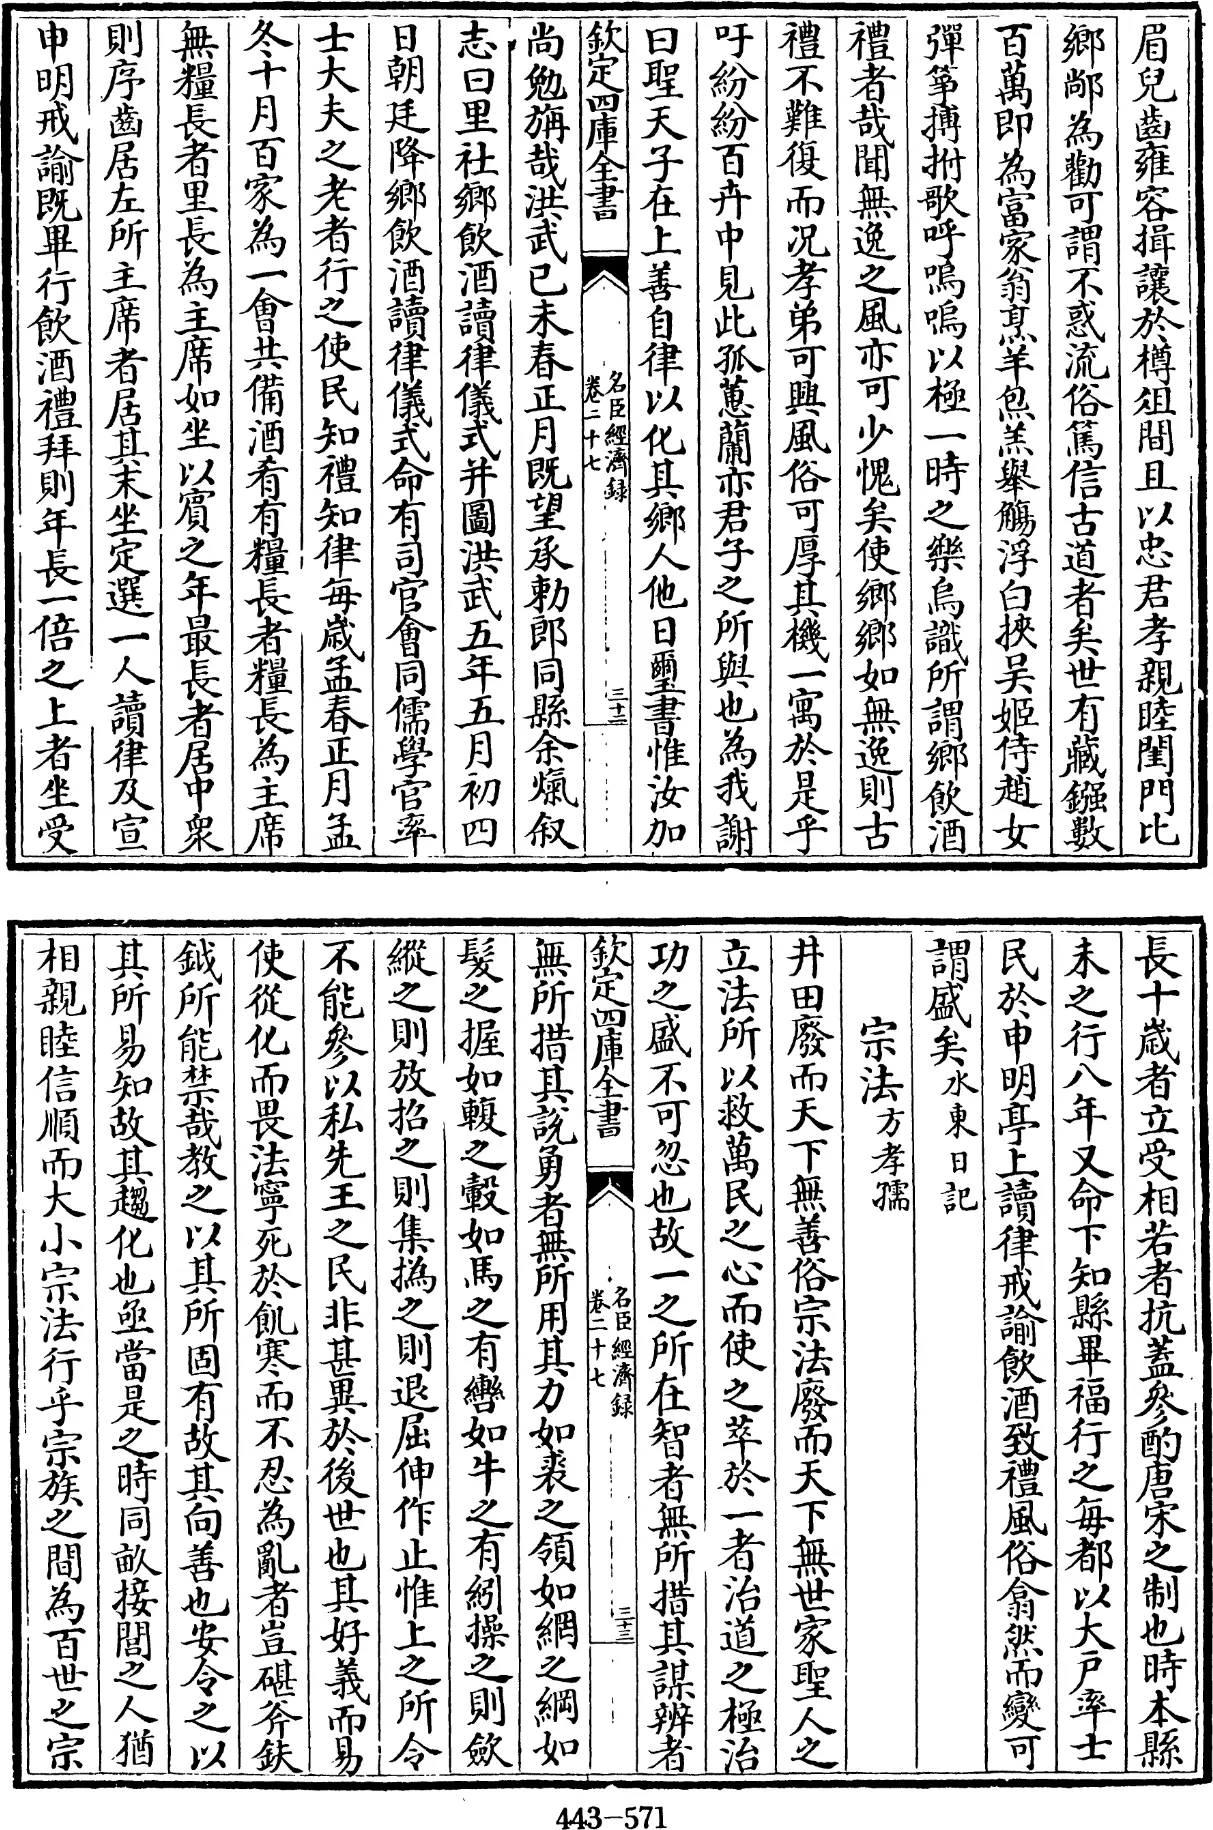 眉兒齒雍容揖讓於樽俎間且以忠君孝親睦閨門比
鄉鄰為勸可謂不惑流俗篤信古道者矣世有藏鏹數
百萬即為富家翁烹羊炰羔舉觴浮白挾吳姬侍趙女
彈箏搏拊歌呼嗚嗚以極一時之樂烏識所謂鄉飲酒
禮者哉聞無逸之風亦可少愧矣使鄉鄉如無逸則古
禮不難復而况孝弟可興風俗可厚其機一寓於是乎
吁紛紛百卉中見此孤蕙蘭亦君子之所與也為我謝
曰聖天子在上善自律以化其鄉人他日璽書惟汝加
欽定四庫全書
名臣經濟録
卷二十七
三十二
尚勉旃哉洪武已未春正月既望承勅郎同縣余熂叙
志曰里社鄉飲酒讀律儀式并圖洪武五年五月初四
日朝廷降鄉飲酒讀律儀式命有司官會同儒學官率
士大夫之老者行之使民知禮知律每歲孟春正月孟
冬十月百家為一會共備酒肴有糧長者糧長為主席
無糧長者里長為主席如坐以賓之年最長者居中衆
則序齒居左所主席者居其末坐定選一人讀律及宣
申明戒諭既畢行飲酒禮拜則年長一倍之上者坐受
長十歲者立受相若者抗蓋參酌唐宋之制也時本縣
未之行八年又命下知縣畢福行之每都以大戸率士
民於申明亭上讀律戒諭飲酒致禮風俗翕然而變可
謂盛矣水東日記
宗法方孝孺
井田廢而天下無善俗宗法廢而天下無世家聖人之
立法所以救萬民之心而使之萃於一者治道之極治
功之盛不可忽也故一之所在智者無所措其謀辨者
欽定四庫全書
名臣經濟録
卷二十七
三十三
無所措其說勇者無所用其力如裘之領如網之綱如
髮之握如輹之轂如馬之有轡如牛之有紖操之則斂
縱之則放招之則集撝之則退屈伸作止惟上之所令
不能參以私先王之民非甚異於後世也其好義而易
使從化而畏法寧死於飢寒而不忍為亂者豈碪斧鈇
鉞所能禁哉教之以其所固有故其向善也安令之以
其所易知故其趨化也亟當是之時同畝接閭之人猶
相親睦信順而大小宗法行乎宗族之間為百世之宗
443-571